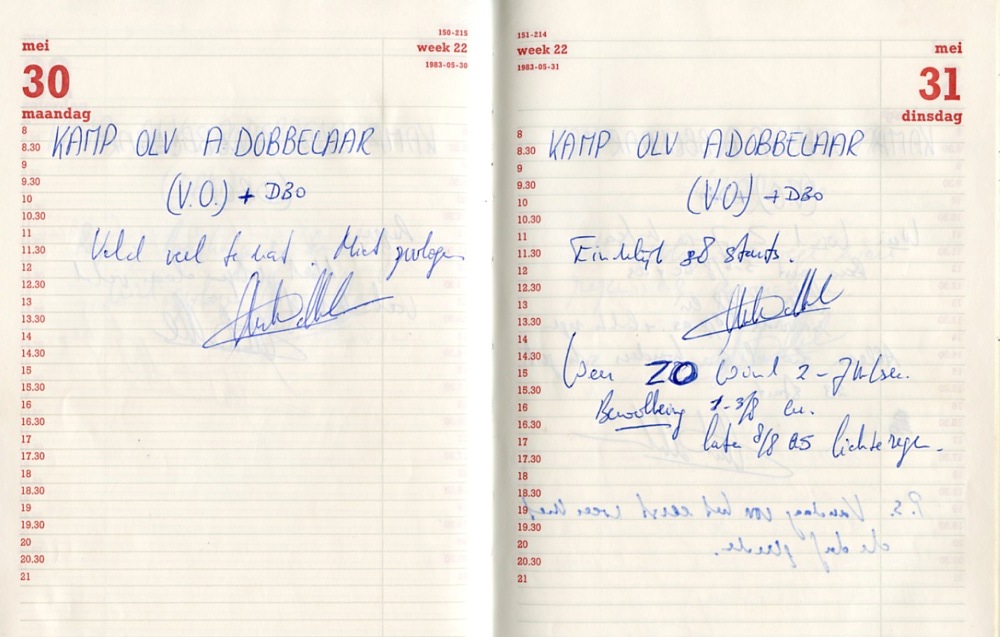 mei
150-215
week 22
1983-05-30
30
maandag
8
KAMP OLV A. DOBBELAAR
8.30
9
9.30
(V.O.) + DBO
10
10.30
11
Veld veel te nat. Niet gevlogen
11.30
12
12.30
13
13.30
14
14.30
15
15.30
16
16.30
17
17.30
18
18.30
19
19.30
20
20.30
21
151-214
week 22
1983-05-31
mei
31
dinsdag
8
KAMP OLV A DOBBELAAR
8.30
9
9.30
(VO) + DBO
10
10.30
11
Eindelijk 38 starts.
11.30
12
12.30
13
13.30
14
14.30
Weer ZO wind 2-7
15
15.30
Bewolking 1-3/8 cu.
16
16.30
later 8/8 as lichte regen.
17
17.30
18
18.30
P.S. Vandaag voor het eerst weer met
19
19.30
de
20
20.30
21